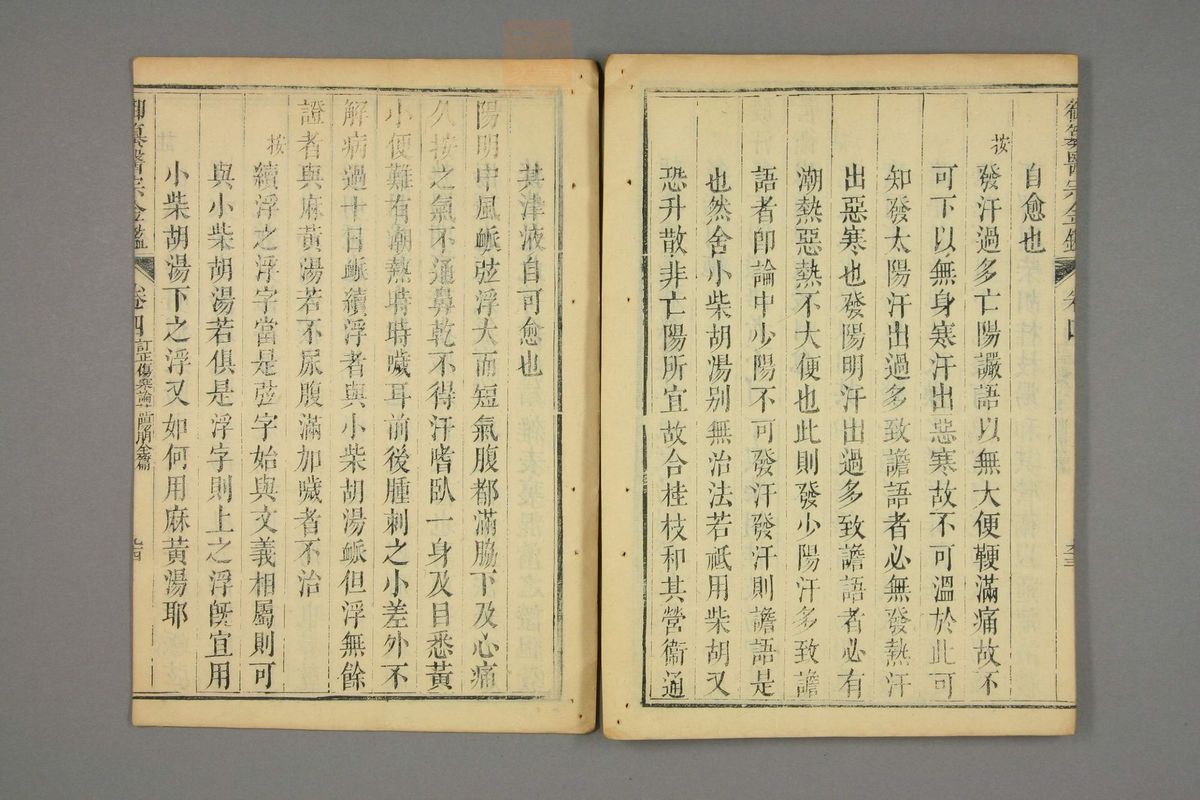 御纂醫宗金鑑
卷四
自愈也
按
發汗過多亡陽讝語以無大便鞕滿痛故不
可下以無身寒汗出惡寒故不可溫於此可
知發太陽汗出過多致譫語者必無發熱汗
出惡寒也發陽明汗出過多致譫語者必有
潮熱惡熱不大便也此則發少陽汗多致譫
語者卽論中少陽不可發汗發汗則譫語是
也然舍小柴胡湯別無治法若祗用柴胡又
恐升散非亡陽所宜故合桂枝和其營衞通
其津液自可愈也
陽明中風脈弦浮大而短氣腹都滿脇下及心痛
久按之氣不通鼻乾不得汗嗜臥一身及目悉黃
小便難有潮熱時時噦耳前後腫刺之小差外不
解病過十日脈續浮者與小柴胡湯脈但浮無餘
證者與麻黃湯若不尿腹滿加噦者不治
按
續浮之浮字當是弦字始與文義相屬則可
與小柴胡湯若俱是浮字則上之浮旣宜用
小柴胡湯下之浮又如何用麻黃湯耶
御纂醫宗金鑑
卷四
訂正傷寒論註陽明全篇